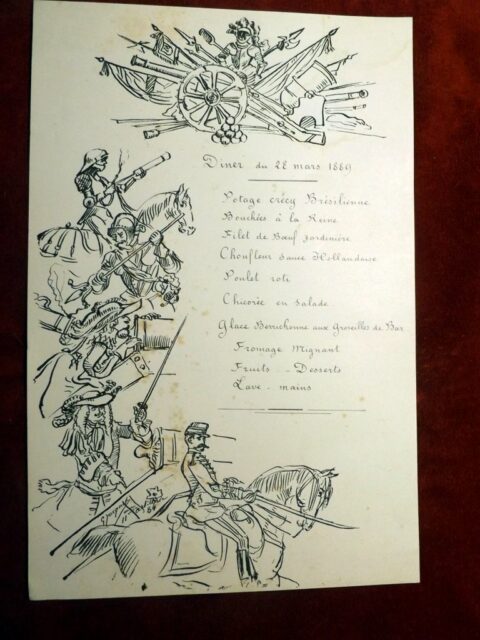 Diner du 22 mars 1869
Potage crécy Brésilienne
Bouchées à la Reine
Filet de Bœuf jardinière
Choufleur sauce Hollandaise
Poulet roti
Chicorée en salade
Glace Berrichonne aux Groseilles de Bar
Fromage Mignant
Fruits - Desserts
Lave - mains